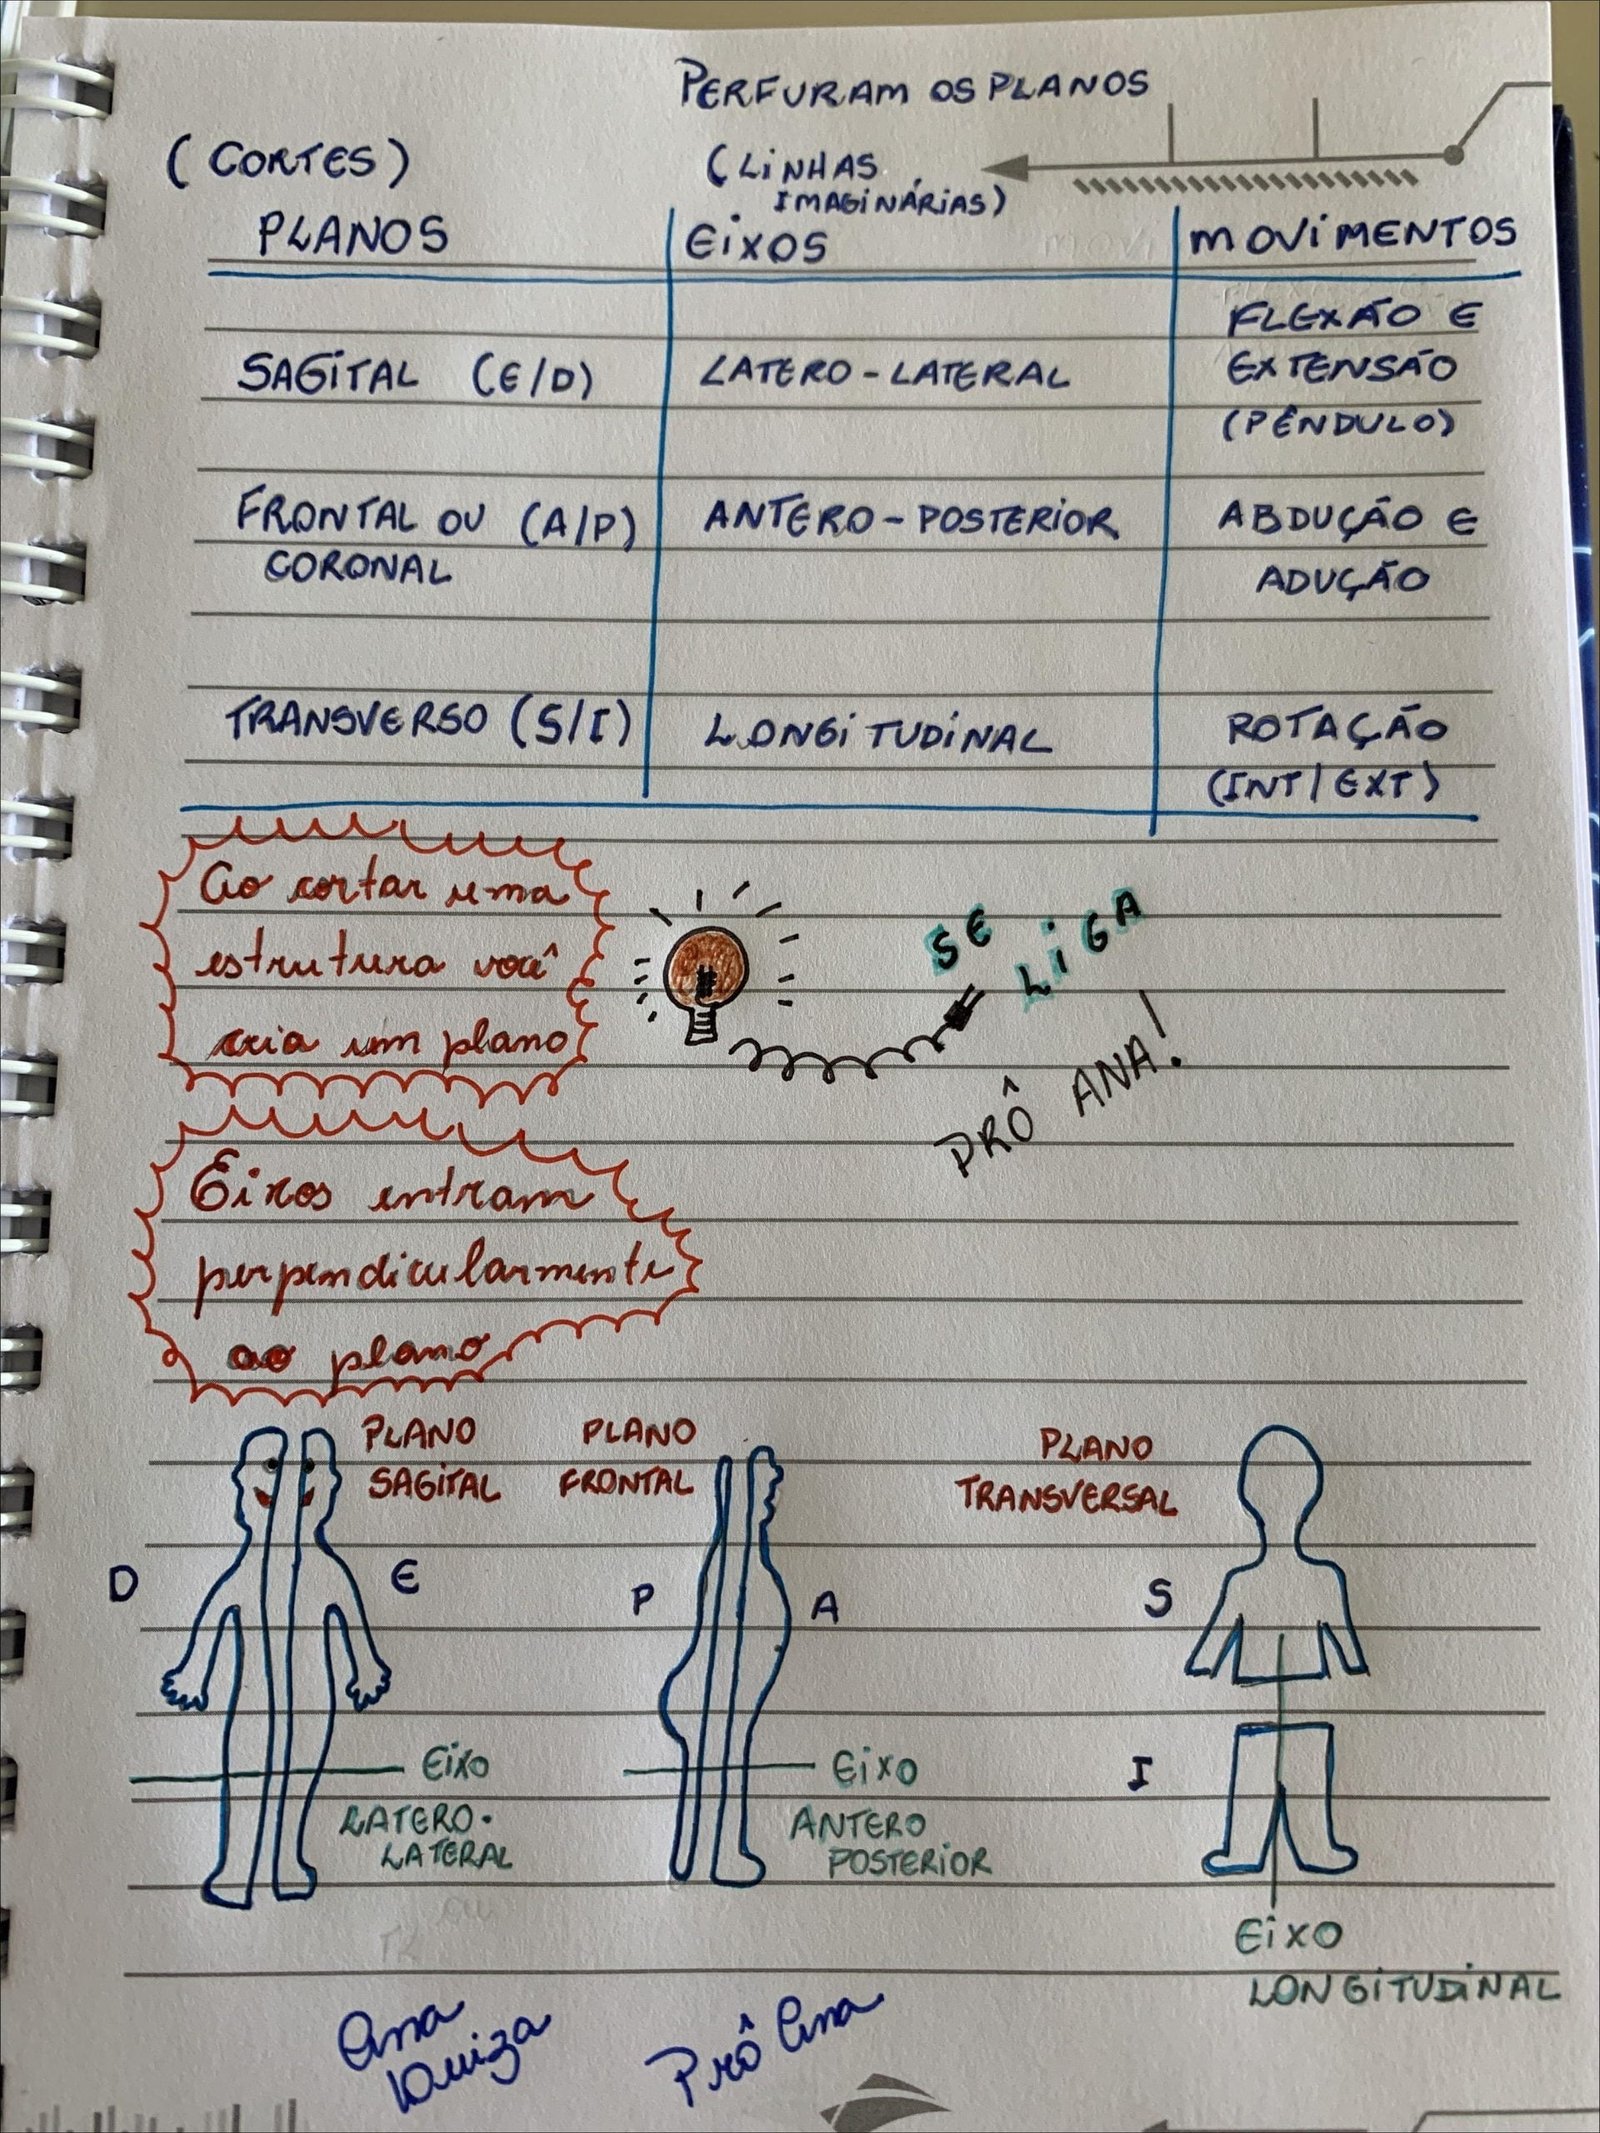 PERFURAM OS PLANOS
(CORTES)
(LINHAS
IMAGINÁRIAS)
PLANOS
EIXOS
MOVIMENTOS
SAGITAL (E/D)
LATERO-LATERAL
FLEXÃO E
EXTENSÃO
(PÊNDULO)
FRONTAL OU (A/P)
CORONAL
ANTERO-POSTERIOR
ABDUÇÃO E
ADUÇÃO
TRANSVERSO (S/I)
LONGITUDINAL
ROTAÇÃO
(INT/EXT)
Ao cortar uma
estrutura você
cria um plano
SE
LIGA
PRÔ ANA!
Eixos entram
perpendicularmente
ao plano
PLANO
SAGITAL
D
E
EIXO
LATERO-
LATERAL
PLANO
FRONTAL
P
A
EIXO
ANTERO
POSTERIOR
PLANO
TRANSVERSAL
S
I
EIXO
LONGITUDINAL
Ana
Luiza
Prô Ana